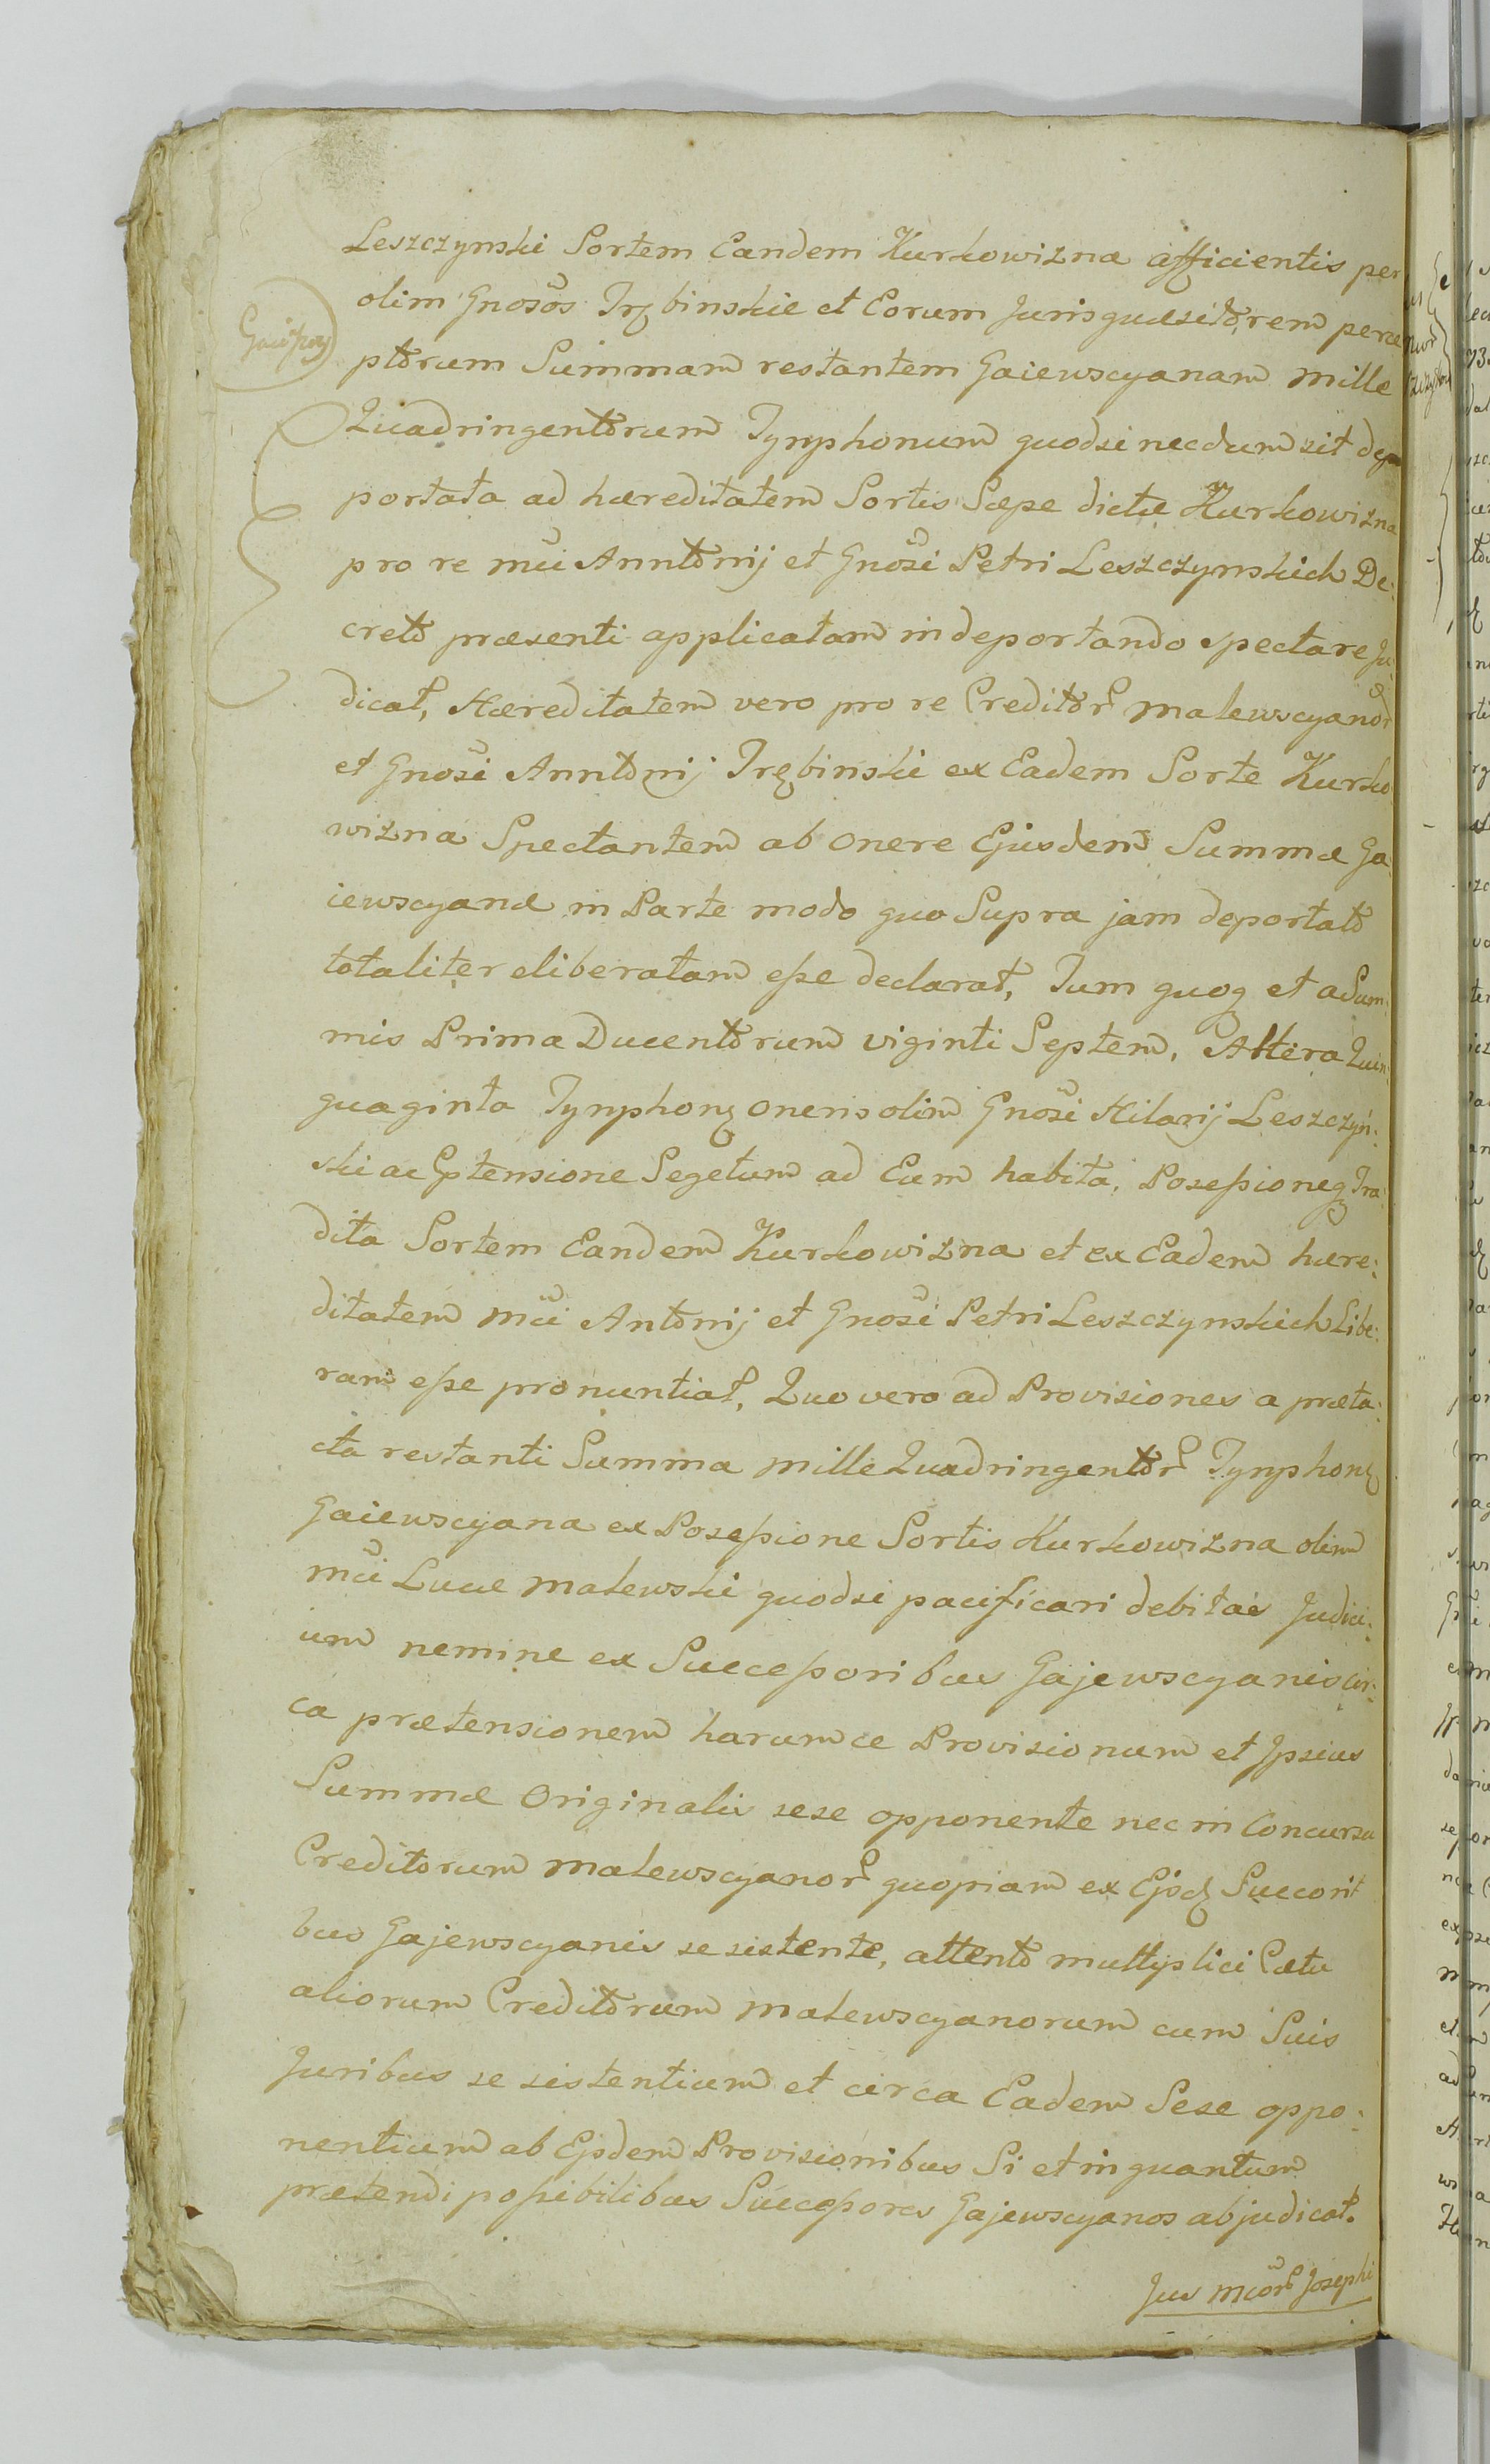 Leszczynski Sortem Eandem Kurkowizna afficientis per
olim Gnosos Trębinskie et Eorum Jurisquæsitorem perce
ptorum Summam restantem Gaiewscyanam mille
Quadringentorum Tynphonum quodsi necdum sit de
portata ad hæreditatem Sortis Sæpe dictæ Kurkowizna
pro re mci Anntonij et Gnosi Petri Leszczynskich De:
creto præsenti applicatam in deportando spectare Ju
dicat, Hæreditatem vero pro re Creditor malewscyanor
et Gnosi Anntonij Trębinski ex Eadem Sorte Kurko
wizna Spectantem ab onere Ejusdem Summæ Ga
iewscyanæ in Parte modo quo Supra jam deportato
totaliter eliberatam esse declarat, Tum quoq et a Sum:
mis Prima Ducentorum viginti Septem, Altera Quin:
quaginta Tynphonq oneris olim Gnosi Hilarij Leszczyń:
ski ac Extensione Segetum ad Eam habita, Possessioneq Tra:
dita Sortem Eandem Kurkowizna et ex Eadem hære:
ditatem mci Antonij et Gnosi Petri Leszczynskich Libe:
ram esse pronuntiat, Quo vero ad Provisiones a præta:
cta restanti Summa mille Quadringentor Tynphonq
Gaiewscyana ex Possessione Sortis Kurkowizna olim
mci Lucæ malewski quodsi pacificari debitas Judici:
um nemine ex Successoribus Gajewscyanis cir:
ca prætensionem harumce Provisionum et Jpsius
Summæ Originalis sese opponente nec in Concursu
Creditorum malewscyanor quopiam ex Ejsdq Succorit
bus Gajewscyanis se sistente, attento multyplici Cætu
aliorum Creditorum malewscyanorum cum Suis
Juribus se sistentium et circa Eadem Sese oppo:
nentium ab Ejsdem Provisionibus Si et in quantum
prætendi possibilibus Successores Gajewscyanos abjudicat.
Jus mcor Josephi